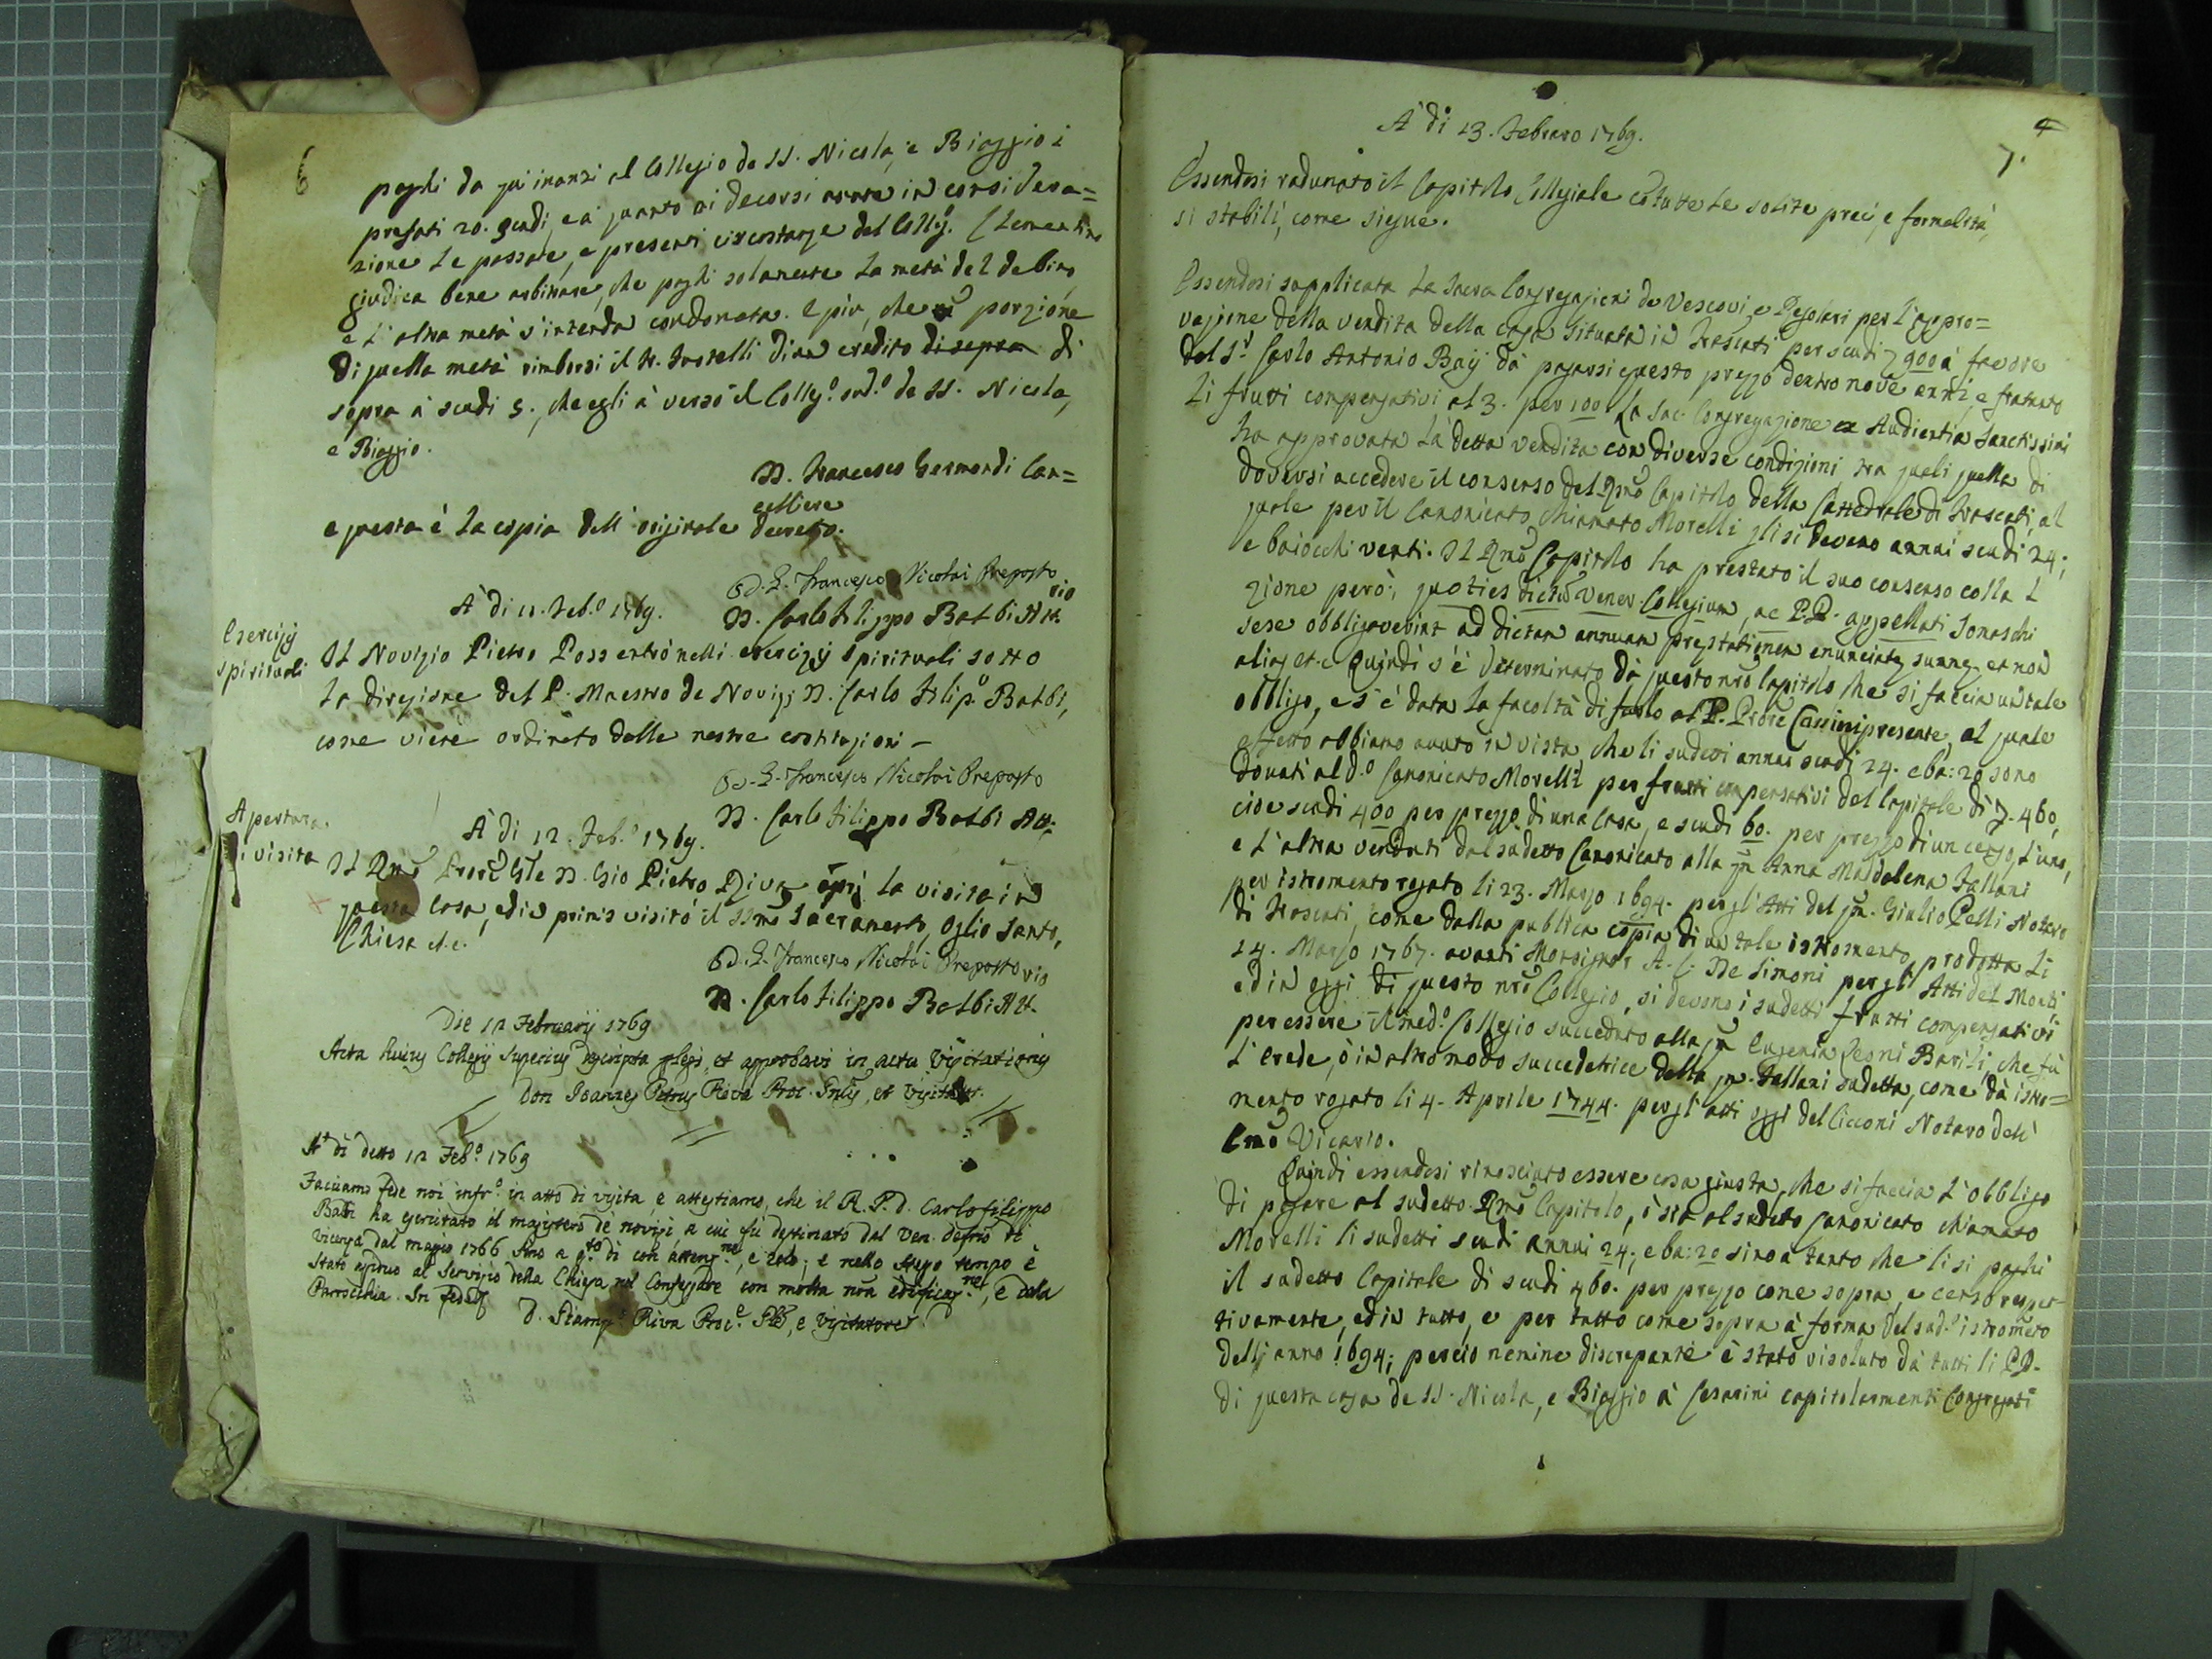 6
paghi da qui inanzi al Collegio de SS. Nicola, e Biaggio i
prefati 20. scudi, e à quanto ai decorsi avere in considera=
zione le passate, e presenti circostanze del Colleg.º Clementino
giudica bene arbitrare, che paghi solamente la metà del debito,
e l'altra metà s'intenda condonata. E più, che porzione
di quella metà rimborsi il N. Fratelli di un credito di sopra di
sopra à scudi 5., che egli à verso il Colleg.º sud.º de SS. Nicola,
e Biaggio.
D. Francesco Germondi Can=
celliere
e questa è la copia dell' originale decreto.
D. G. Francesco Nicolai Preposto
D. Carlo Filippo Balbi Att.rio
A' di 11. Feb.º 1769.
Esercizij
spirituali
Il Novizio Pietro Poss entrò nelli esercizij spirituali sotto
la direzione del P. Maestro de Novizj D. Carlo Filip.º Balbi,
come viene ordinato dalle nostre costituzioni –
D. G. Francesco Nicolai Preposto
D. Carlo Filippo Balbi Att.
Apertura
di visita
A' di 12. Feb.º 1769.
Il Rmo D. Gio Pietro Riva aprì la visita in
questa Casa, ed in primis visitò il SSmo Sacramento, Oglio Santo,
Chiesa et.c.
D. G. Francesco Nicolai Preposto
D. Carlo Filippo Balbi Att.rio
Die 12 Februarij 1769
Acta huius Collegij superius descripta legi, et approbavi in actu Visitationis
Don Joannes Petrus Riva Proc. Gnlis, et Visitator.
A' dì detto 12 Feb.º 1769
Facciamo fede noi infr.º in atto di visita, e attestiamo, che il R. P. D. Carlo Filippo
Balbi ha esercitato il magistero de novizi, a cui fù destinato dal Ven. Defrio di
Vicenza dal magio 1766 sino a q.to dì con attenz.ne, e zelo; e nello stesso tempo è
stato assiduo al servizio della Chiesa nel Confessare con molta nra edificaz.ne, e della
Parrocchia. In fede
D. Giamp.º Riva Proc.e Gnle, e Visitatore
4
7.
A' di 13. Febraro 1769.
Essendosi radunato il Capitolo Collegiale cō tutte le solite preci, e formalità,
si stabilì, come siegue.
Essendosi supplicata la Sacra Congregazione de Vescovi, e Regolari per l'appro=
vazione della vendita della casa situata in Frascati per scudi 900 à favore
del S.r Carlo Antonio Baij dà pagarsi questo prezzo dentro nove anni, e frattanto
li frutti compensativi al 3. per 100. La Sac. Congregazione ex Audientia Sanctissimi
ha approvata la detta vendita con diverse condizioni tra quali quella di
doversi accedere il consenso del Rmo Capitolo della Cattedrale di Frascati, al
quale per il Canonicato chiamato Morelli gli si devono annui scudi 24;
e baiocchi venti. Il Rmo Capitolo ha prestato il suo consenso colla
zione però; quoties dictū Vener. Collegium, ac PP. appellati Somaschi
sese obbligaverint ad dictam annuam prestationem enunciatę summę et non
alias et.c. Quindi s'è determinato dà questo nro Capitolo che si faccia un tale
obbligo, e s'è data la facoltà di farlo al P. Priore Cassini presente, al quale
effetto abbiamo avuto in vista, che li sudetti annui scudi 24. e ba: 20 sono
dovuti al d.º Canonicato Morelli per frutti compensativi del Capitale di 460,
cioe scudi 400 per prezzo di una Casa, e scudi 60. per prezzo di un censo, l'uno,
e l'altra venduti dal sudetto Canonicato alla qm Anna Maddalena Fallani
per istromento rogato li 23. Marzo 1694. per gl'Atti del qm. Giulio Pelli Notaro
di Frascati, come dalla publica copia di un tale istromento, prodotta li
14. Marzo 1767. avanti Monsignor A. C. De Simoni per gl'Atti del Monti,
ed in oggi di questo nro Collegio, si devono i sudetti frutti compensativi
per essere il med.º Collegio succeduto alla qm Eugenia Barili, che fù
l'erede, ò in altro modo succeditrice della qm. Fallani sudetta, come dà istro=
mento rogato li 4. Aprile 1744. per gl'atti oggi del Cicconi Notaro dell'
Emo Vicario.
Quindi essendosi riconosciuto essere cosa giusta, che si faccia l'obbligo
di pagare al sudetto Rmo Capitolo, ò sia al sudetto Canonicato chiamato
Morelli li sudetti scudi annui 24; e ba: 20 sino à tanto che li si paghi
il sudetto Capitale di scudi 460. per prezzo come sopra, e censo respet-
tivamente, ed in tutto, e per tutto come sopra à forma del sud.º istrometo
dell'anno 1694; perciò nemine discrepante è stato risoluto dà tutti li PP.
di questa casa de SS. Nicola, e Biaggio à Cesarini capitolarmenti Congregati